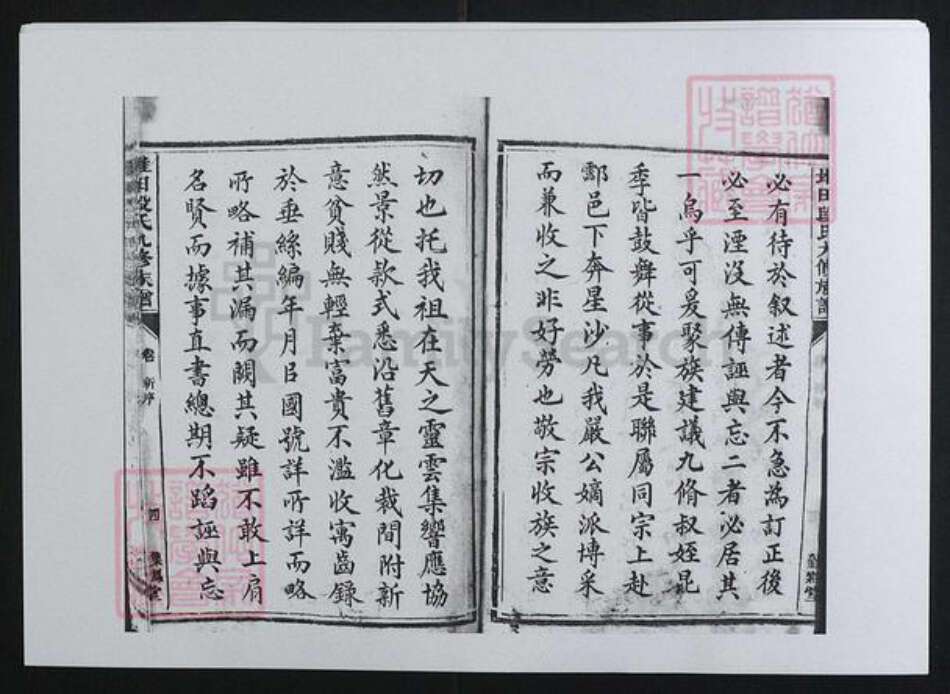 必有待於叙述者今不急為訂正後
必至湮沒無傳誣與忘二者必居其
一烏乎可爰聚族建議九脩叔姪昆
季皆鼓舞從事於是聯屬同宗上赴
酃邑下奔星沙凡我嚴公嫡派博采
而兼收之非好勞也敬宗收族之意
切也托我祖在天之靈雲集響應協
然景從款式悉沿舊章化裁間附新
意貧賤無輕棄富貴不濫收寓齒錄
於垂絲編年月曰國號詳所詳而略
所略補其漏而闕其疑雖不敢上肩
名賢而據事直書總期不蹈誣與忘
段氏九修族譜
卷
新序
四
FamilySearch